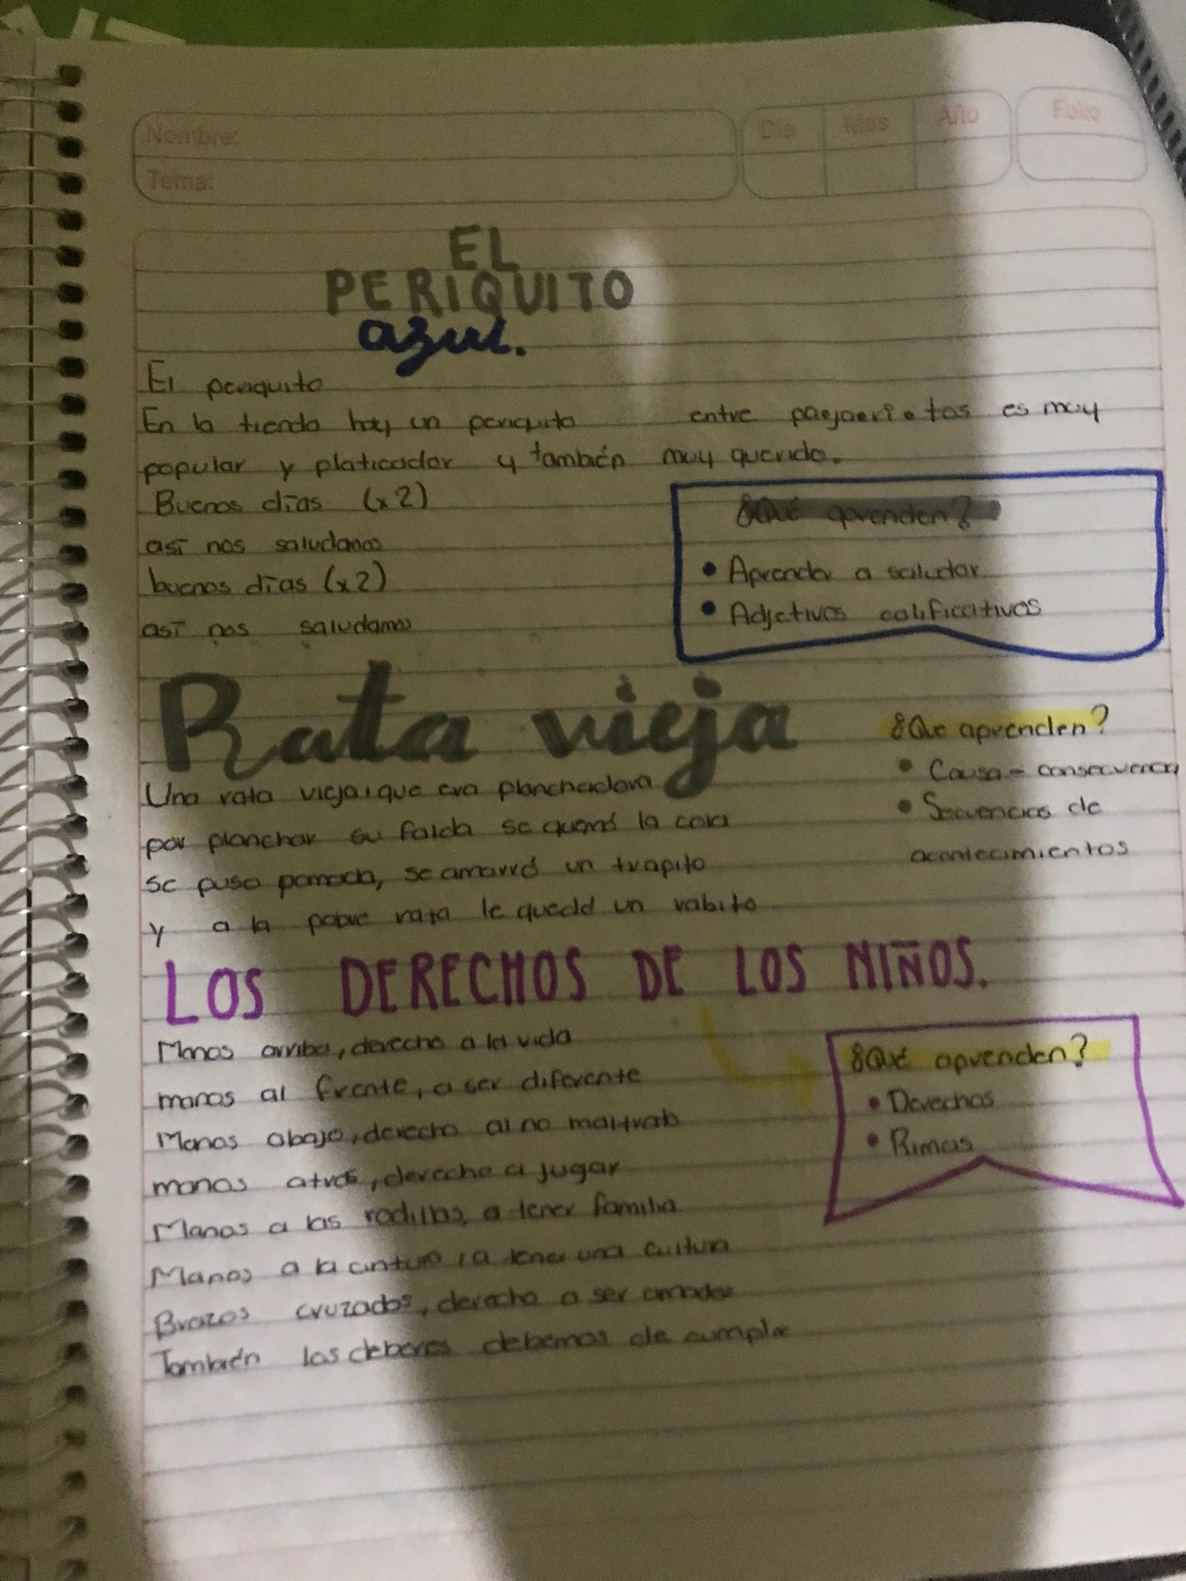 Nombre:
Tema:
Día Mes Año Folio
EL
PERIQUITO
azul.
El periquito
En la tienda hay un periquito entre pagjaerietos es muy
popular y platicador y también muy querido.
Buenos días (x2)
así nos saludamos
buenos días (x2)
así nos saludamos
¿Qué aprenden?
• Aprender a saludar
• Adjetivos calificativos
Rata vieja
Una rata vieja, que era planchadora
por planchar su falda se quemó la cola
Se puso pomada, se amarró un trapito
y a la pobre rata le quedó un rabito
¿Que aprenden?
• Causa - consecuencia
• Secuencias de
acontecimientos
LOS DERECHOS DE LOS NIÑOS.
Manos arriba, derecho a la vida
manos al frente, a ser diferente
Manos abajo, derecho al no maltrato
manos atrás, derecho a jugar
Manos a las rodillas, a tener familia
Manos a la cintura, a tener una cultura
Brazos cruzados, derecho a ser amados
También los deberes debemos de cumplir
¿Qué aprenden?
• Derechos
• Rimas